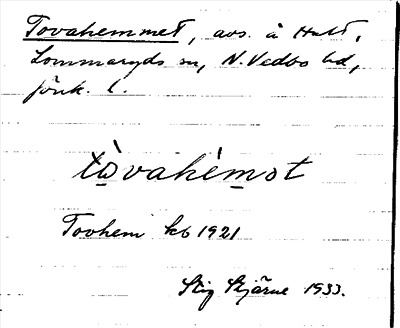 Tovahemmet, avs. å Hult,
Lommaryds sn, N. Vedbo hd,
Jönk. l.
tò̲vahém̲ot
Tovhem kb 1921
Stig Stjärne 1933.